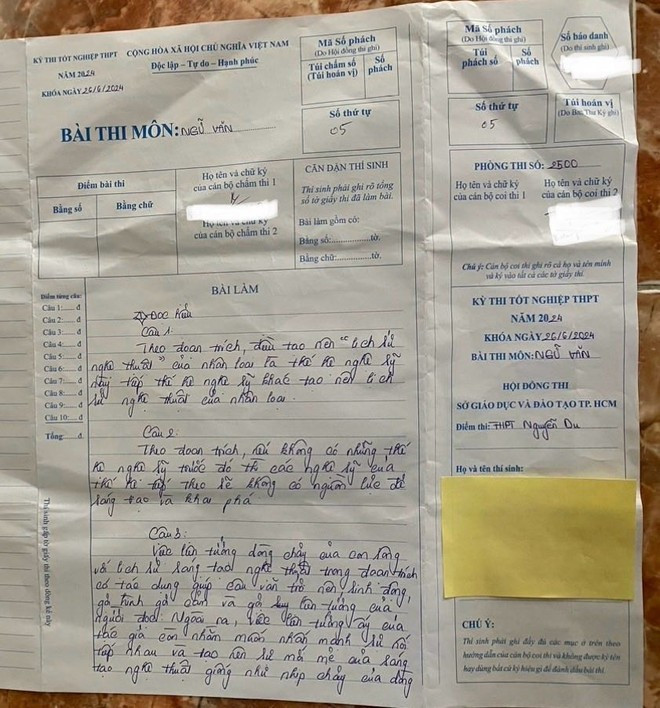 KỲ THI TỐT NGHIỆP THPT
NĂM 2024
KHÓA NGÀY 26/6/2024
CỘNG HÒA XÃ HỘI CHỦ NGHĨA VIỆT NAM
Độc lập – Tự do – Hạnh phúc
BÀI THI MÔN: NGỮ VĂN
Mã Số phách
(Do Hội đồng thi ghi)
Túi chấm số
(Túi hoán vị)
Số phách
Số thứ tự
05
Điểm bài thi
Bằng số
Bằng chữ
Họ tên và chữ ký
của cán bộ chấm thi 1
Họ tên và chữ ký
của cán bộ chấm thi 2
CĂN DẶN THÍ SINH
Thí sinh phải ghi rõ tổng
số tờ giấy thi đã làm bài.
Bài làm gồm có:
Bằng số:..............tờ.
Bằng chữ:..............tờ.
Điểm từng câu:
Câu 1:.... đ
Câu 2:.... đ
Câu 3:.... đ
Câu 4:.... đ
Câu 5:.... đ
Câu 6:.... đ
Câu 7:.... đ
Câu 8:.... đ
Câu 9:.... đ
Câu 10:.... đ
Tổng:.... đ
Thí sinh gấp tờ giấy thi theo dòng kẻ này
BÀI LÀM
I) Đọc hiểu
Câu 1:
Theo đoạn trích, điều tạo nên "lịch sử
nghệ thuật" của nhân loại là thế hệ nghệ sỹ
này tiếp thế hệ nghệ sỹ khác tạo nên lịch
sử nghệ thuật của nhân loại.
Câu 2:
Theo đoạn trích, nếu không có những thế
hệ nghệ sỹ trước đó thì các nghệ sỹ của
thế hệ tiếp theo sẽ không có nguồn lực để
sáng tạo và khai phá
Câu 3:
Việc liên tưởng dòng chảy của con sông
với lịch sử sáng tạo nghệ thuật trong đoạn trích
có tác dụng giúp câu văn trở nên sinh động,
gợi hình gợi cảm và gợi suy liên tưởng của
người đọc. Ngoài ra, việc liên tưởng ấy của
tác giả còn nhằm muốn nhấn mạnh sự nối
tiếp nhau và tạo nên sự mới mẻ của sáng
tạo nghệ thuật giống như nhịp chảy của dòng
Mã Số phách
(Do Hội đồng thi ghi)
Túi
phách số
Số
phách
Số báo danh
(Do thí sinh ghi)
Số thứ tự
05
Túi hoán vị
(Do Ban Thư Ký ghi)
PHÒNG THI SỐ: 2500
Họ tên và chữ ký
của cán bộ coi thi 1
Họ tên và chữ ký
của cán bộ coi thi 2
Chú ý: Cán bộ coi thi ghi rõ cả họ và tên mình
và ký vào tất cả các tờ giấy thi.
KỲ THI TỐT NGHIỆP THPT
NĂM 2024
KHÓA NGÀY 26/6/2024
BÀI THI MÔN: NGỮ VĂN
HỘI ĐỒNG THI
SỞ GIÁO DỤC VÀ ĐÀO TẠO TP. HCM
Điểm thi: THPT Nguyễn Du
Họ và tên thí sinh:
CHÚ Ý:
Thí sinh phải ghi đầy đủ các mục ở trên theo
hướng dẫn của cán bộ coi thi và không được ký tên
hay dùng bất cứ ký hiệu gì để đánh dấu bài thi.